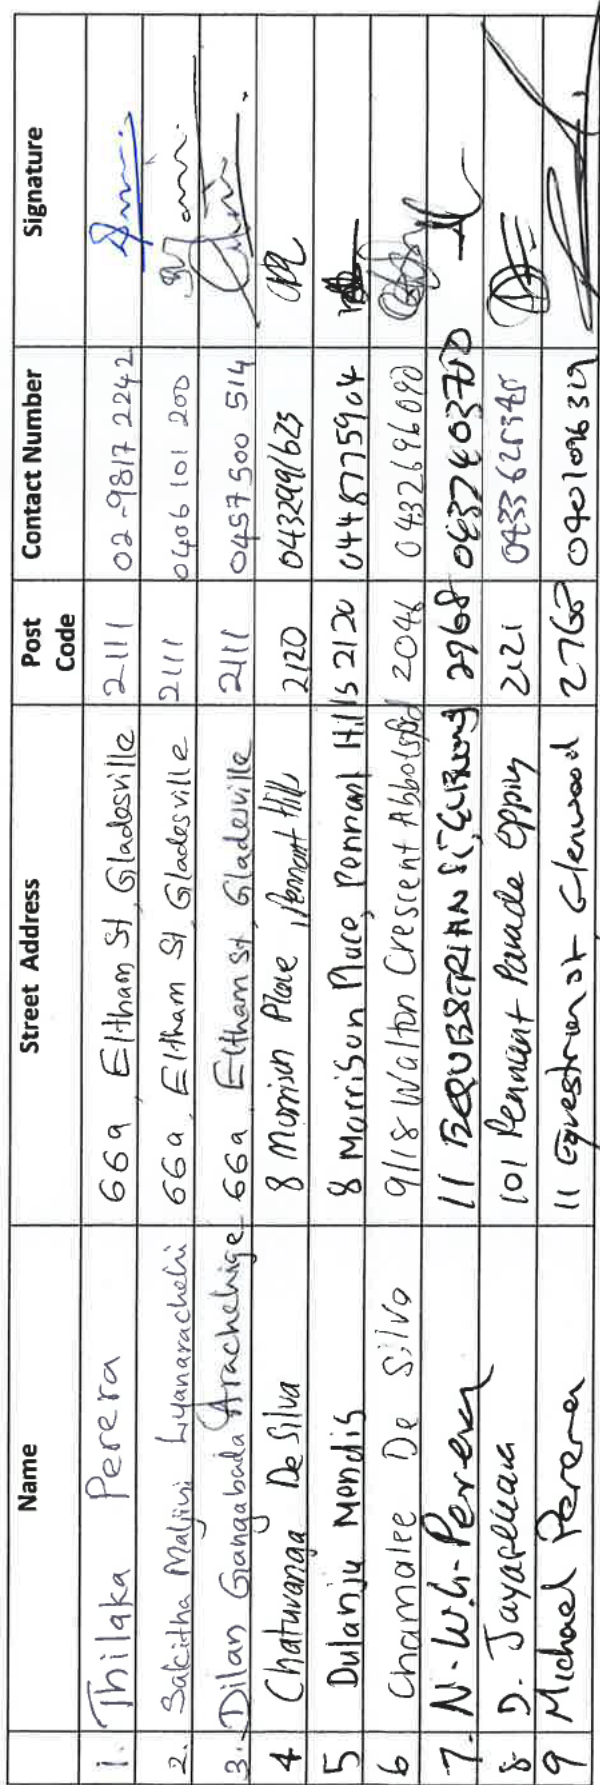 Name Street Address Post Code Contact Number Signature
1. Thilaka Perera 66a, Eltham St, Gladesville 2111 02-9817 2242
2. Liyanarachchi 66a, Eltham St, Gladesville 2111 0406 101 200
3. Dilan Gangabada Arachchige 66a, Eltham St, Gladesville 2111 0457 500 514
4 Chaturanga De Silva 8 Morrison Place, Pennant Hills 2120 0432991623
5 Dulanju Mendis 8 Morrison Place, Pennant Hills 2120 0448775904
6 Chamalee De Silva 9/18 Walton Crescent Abbotsford 2046 0432696090
7. N.W.G. Perera 11 2768
8 D. 101 Pennant Parade Epping 2121
9 Michael Perera 11 Equestrian st Glenwood 2768